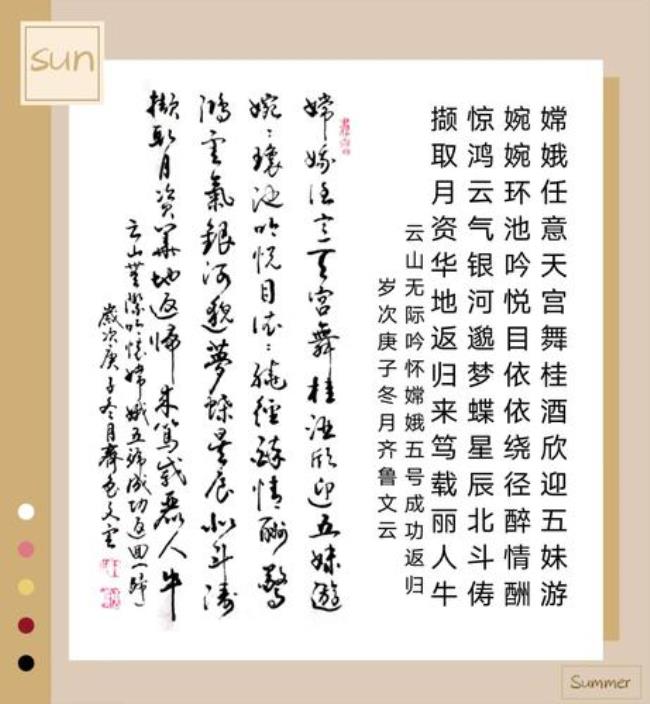 sun
嫦娥任意天宫舞桂酒欣迎五妹游
婉婉环池吟悦目依依绕径醉情酬
惊鸿云气银河邈梦蝶星辰北斗俦
撷取月资华地返归来笃载丽人牛
云山无际吟怀嫦娥五号成功返归
岁次庚子冬月齐鲁文云
嫦娥任意天宮舞桂酒欣迎五妹遊
婉〻環池吟悦目依〻繞徑醉情酬驚
鴻雲氣銀河邈夢蝶星辰北斗儔
擷取月資華地返歸来篤載麗人牛
云山無際吟懷嫦娥五號成功返回（歸）
歲次庚子冬月齊魯文雲
Summer